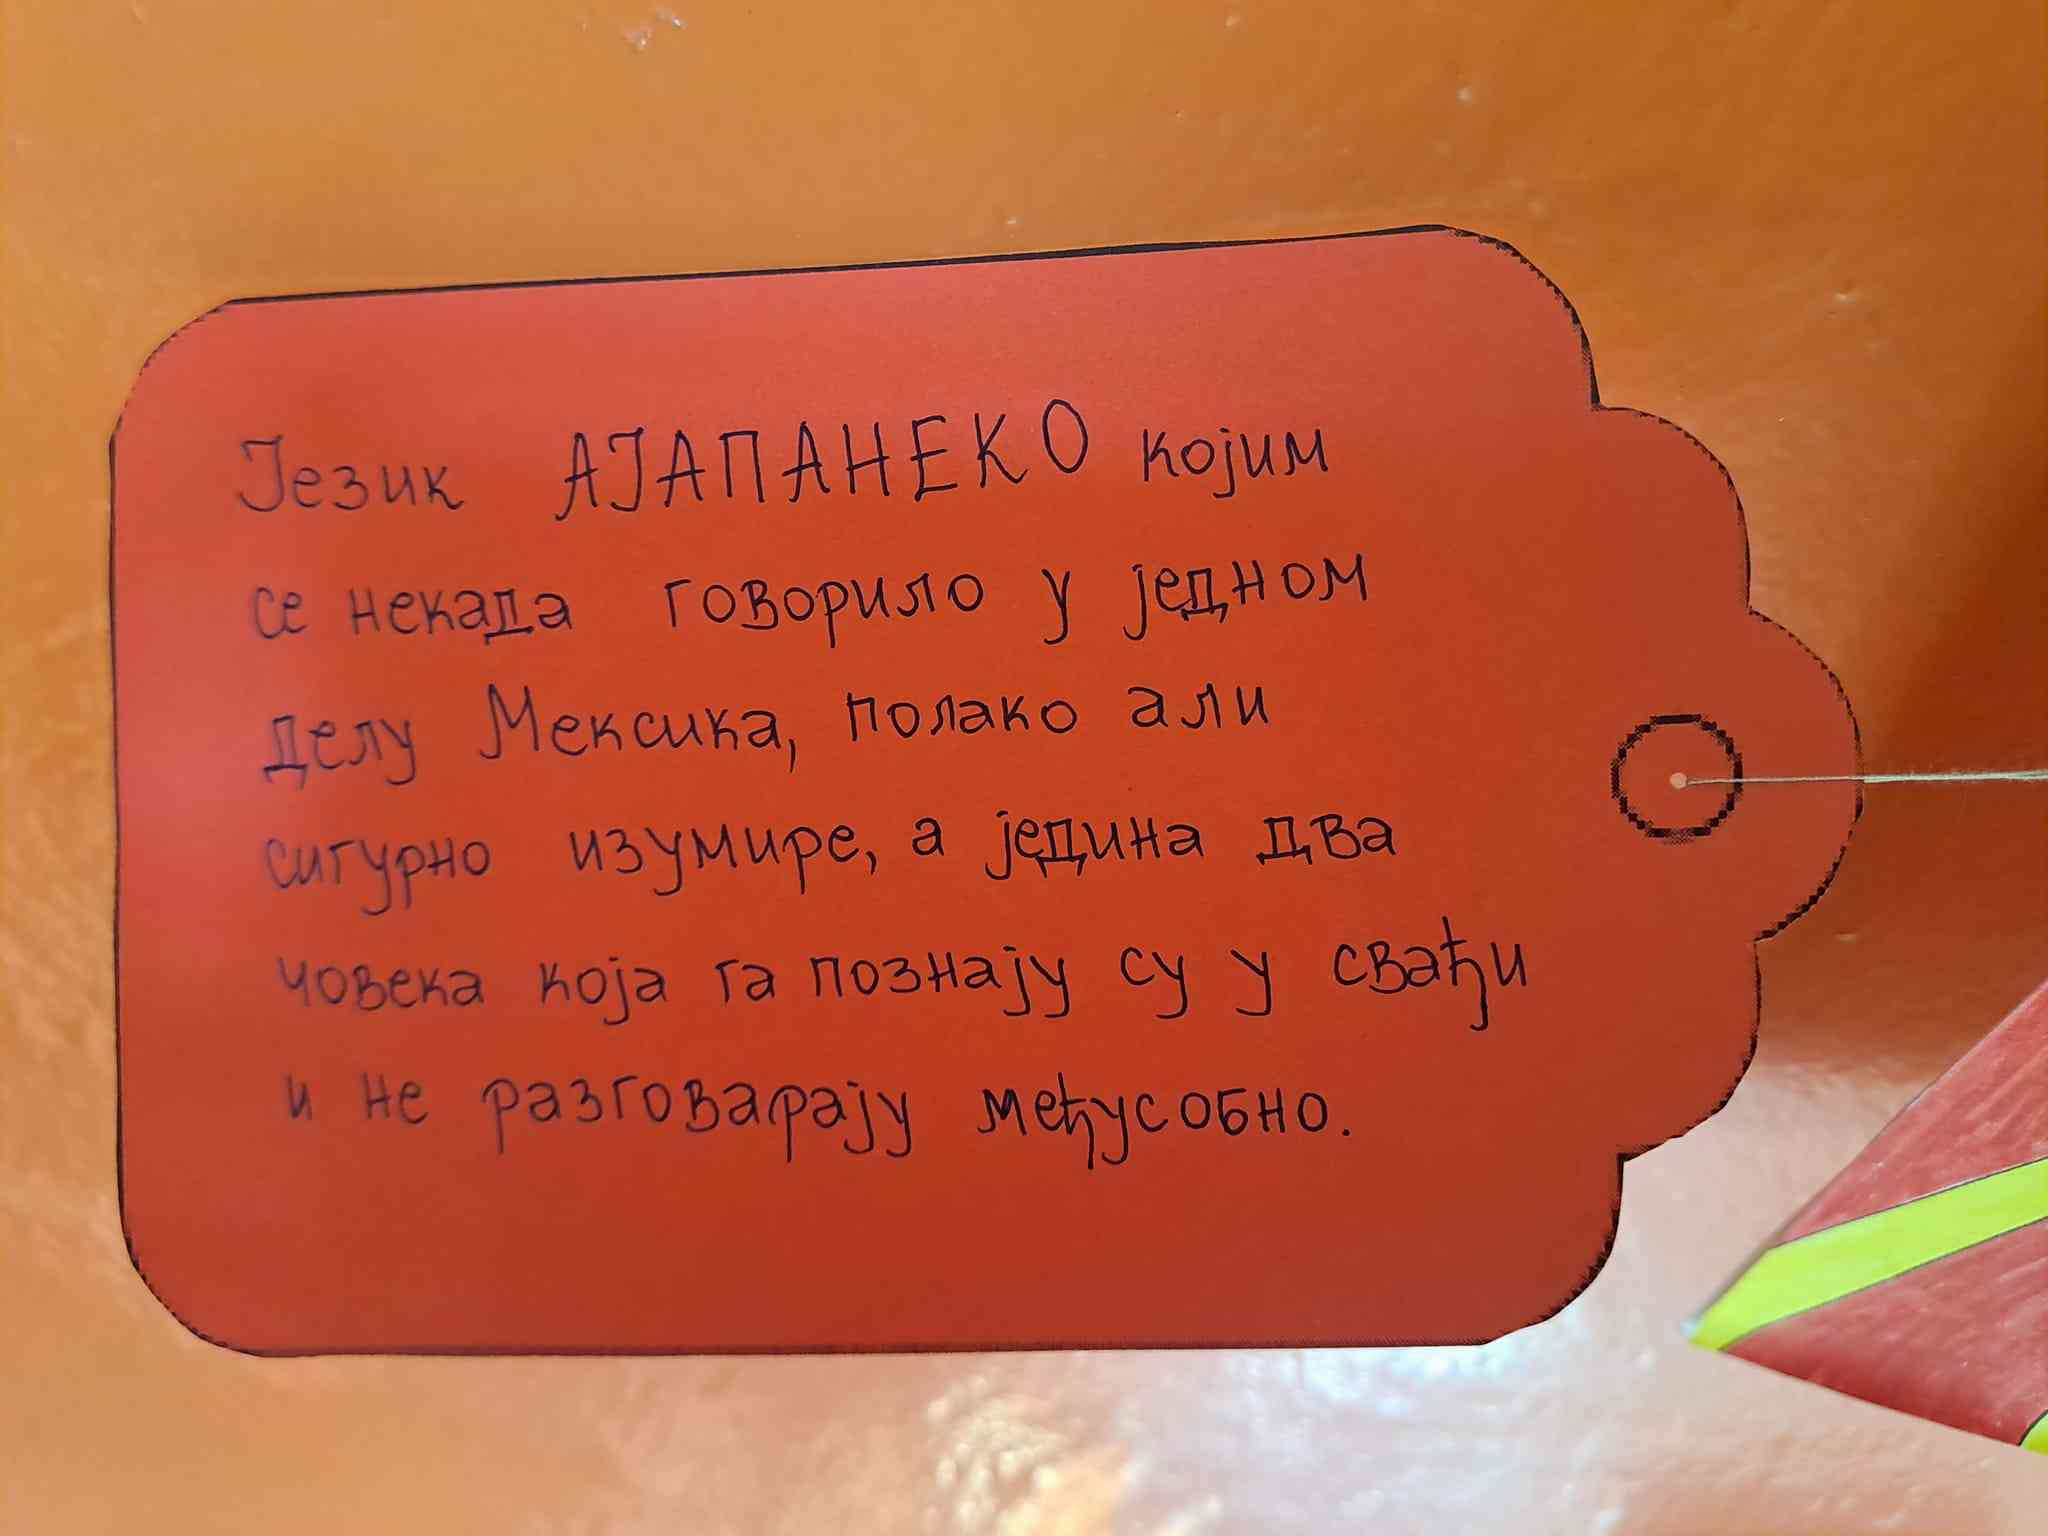 Језик АЈАПАНЕКО којим
се некада говорило у једном
делу Мексика, полако али
сигурно изумире, а једина два
човека која га познају су у свађи
и не разговарају међусобно.